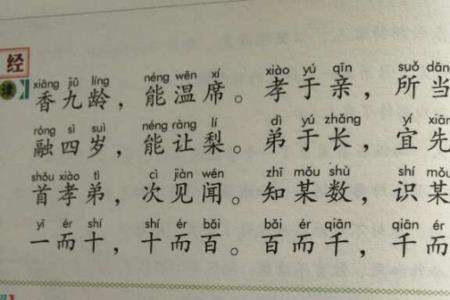 经
xiāng jiǔ líng néng wēn xí xiào yú qīn suǒ dāng
香九龄，能温席。孝于亲，所当
róng sì suì néng ràng lí dì yú zhǎng yí xiān
融四岁，能让梨。弟于长，宜先
shǒu xiào tì cì jiàn wén zhī mǒu shù shí mǒu
首孝弟，次见闻。知某数，识某
yī ér shí shí ér bǎi bǎi ér qiān qiān ér
一而十，十而百。百而千，千而